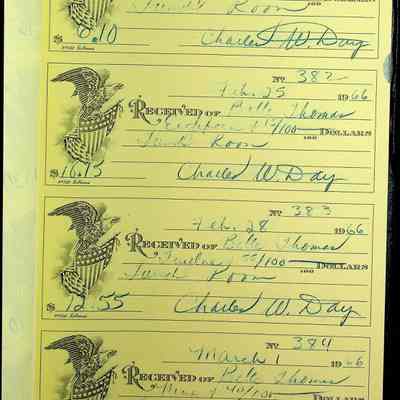 Lunch Room
$ 6.10 Charles W. Day
No 382
Feb. 25 1966
RECEIVED OF Belle Thomas
Sixteen & 15/100 DOLLARS
Lunch Room
$ 16.15 Charles W. Day
No 383
Feb. 28 1966
RECEIVED OF Belle Thomas
Twelve & 55/100 DOLLARS
Lunch Room
$ 12.55 Charles W. Day
No 384
March 1 1966
RECEIVED OF Belle Thomas
40/100 DOLLARS